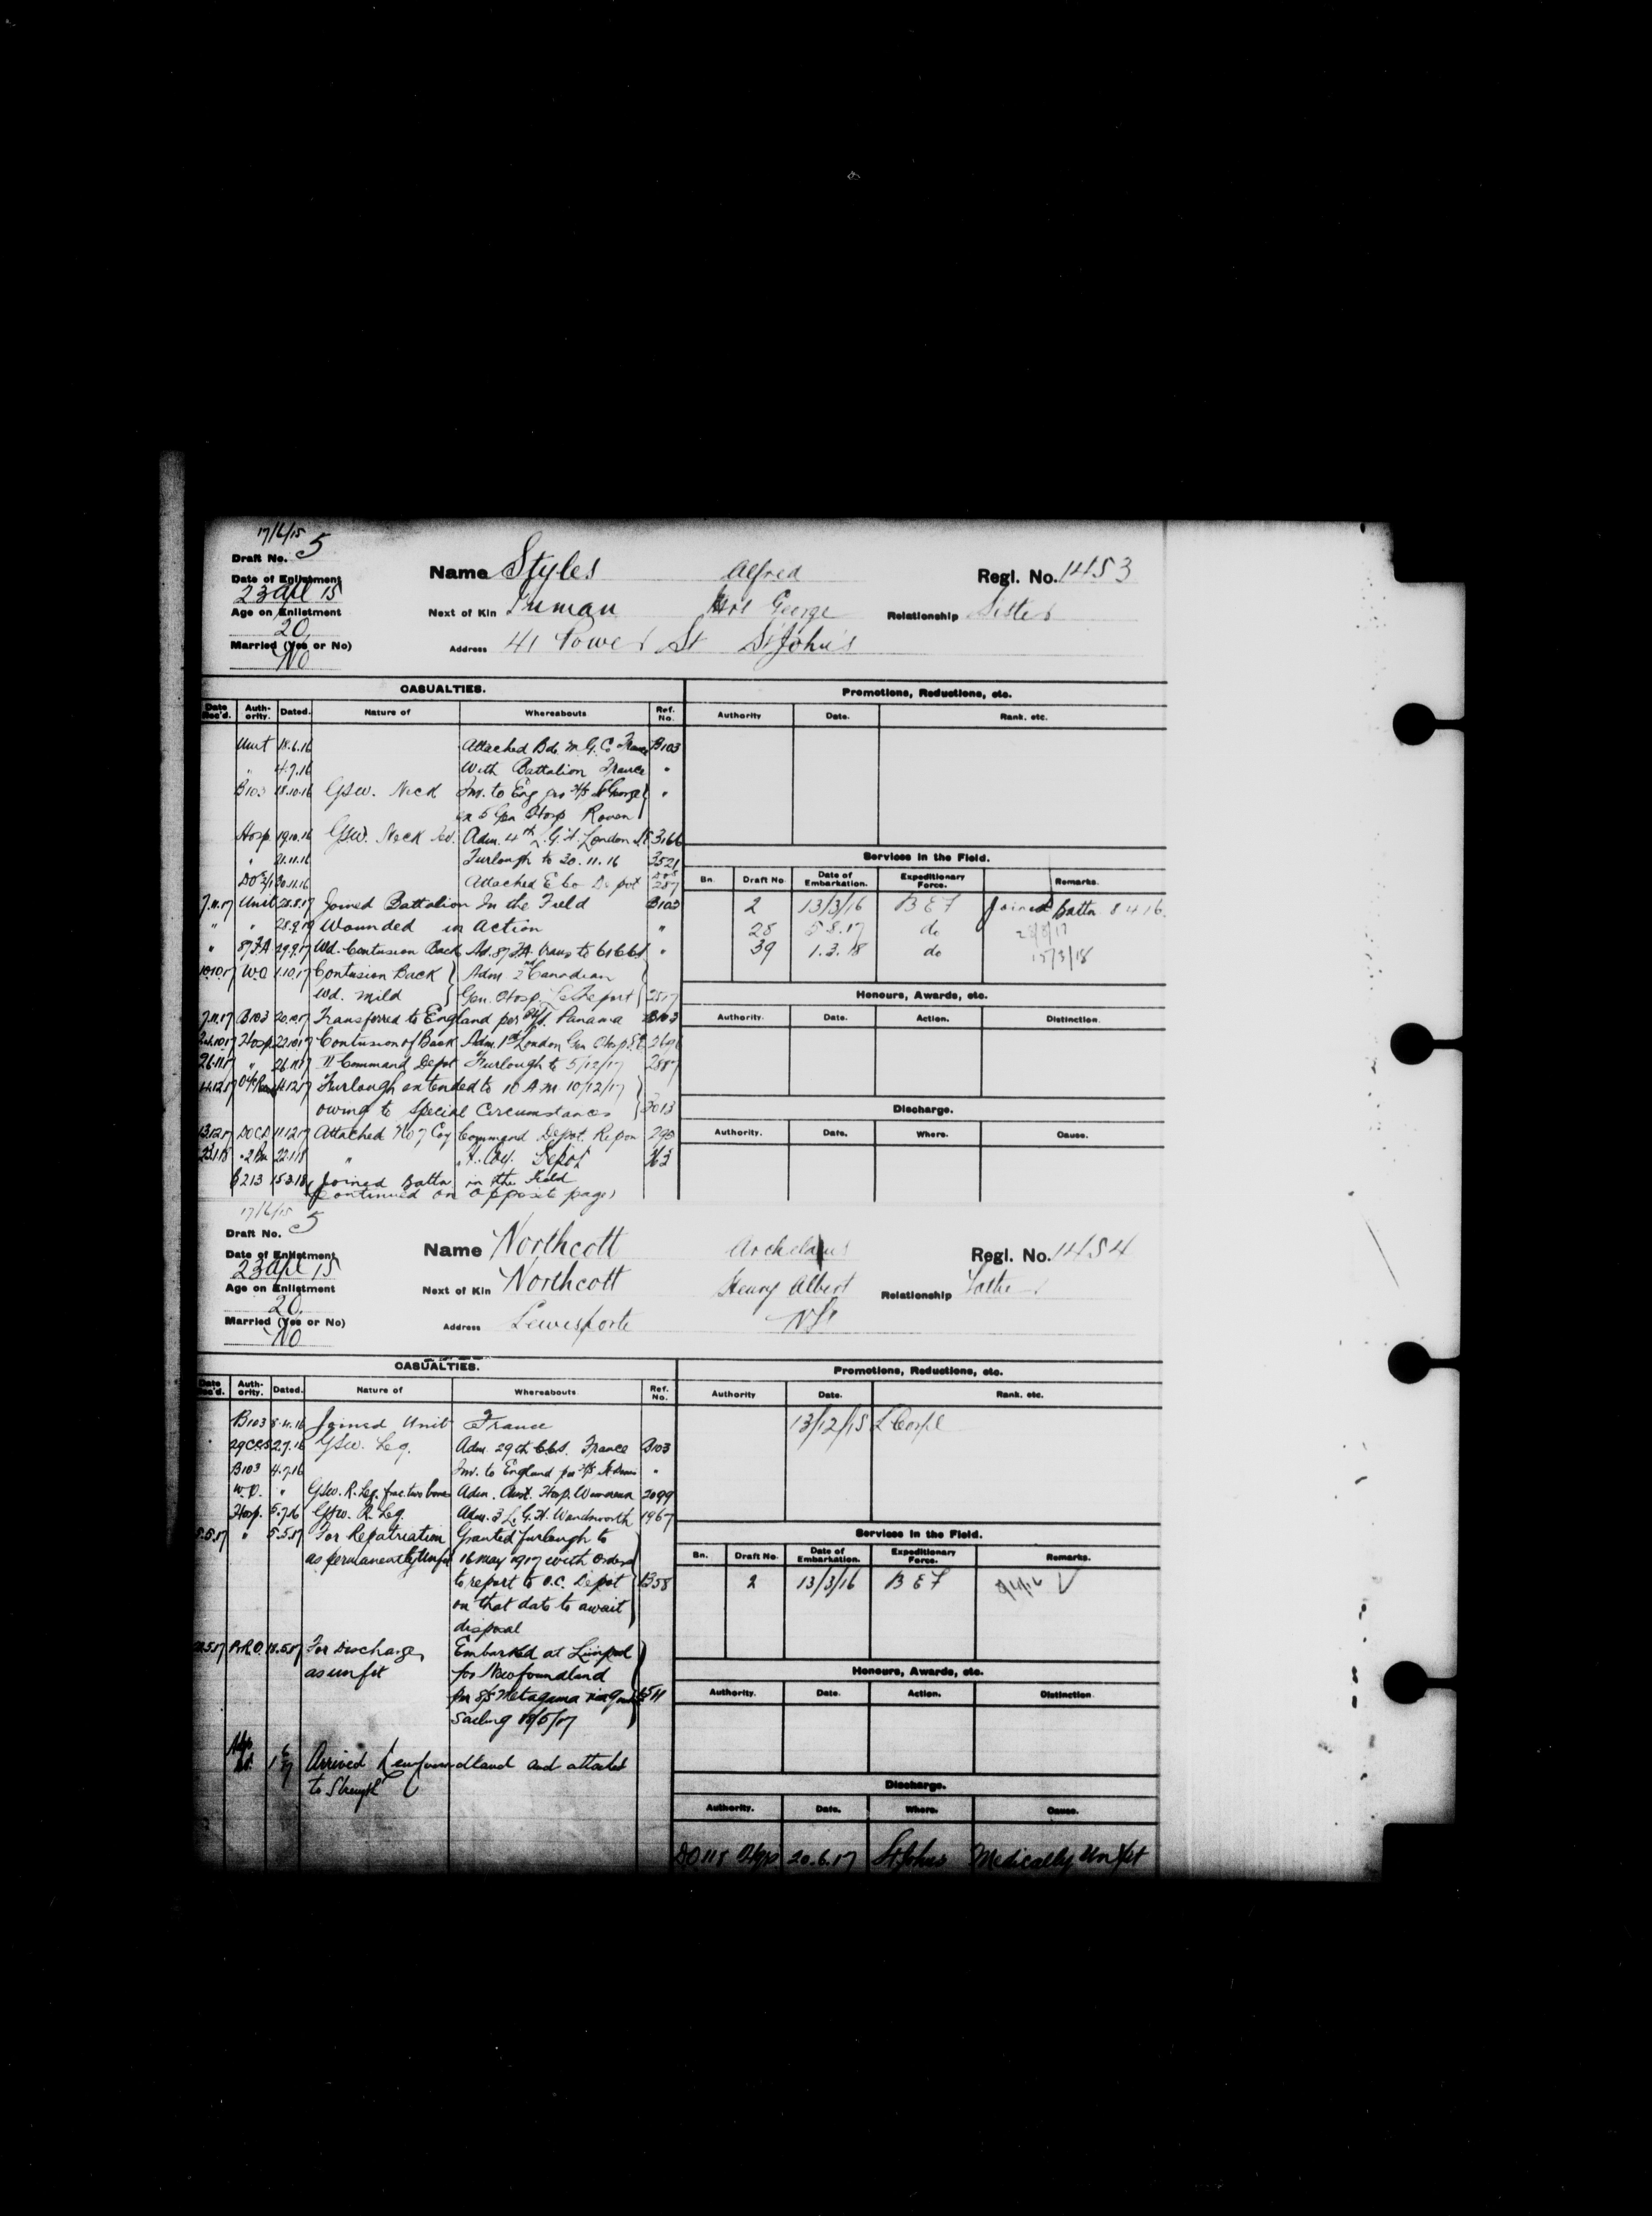 17/6/15
Draft No. 5
Date of Enlistment
23 Apl 15
Age on Enlistment
20
Married (Yes or No)
No
Name Styles Alfred Regl. No. 1453
Next of Kin Inman Mrs George Relationship Sister
Address 41 Power St St John's
CASUALTIES.
Date Rec'd. Auth-ority. Dated. Nature of Whereabouts Ref. No.
Unit 18.6.16 Attached Bde M.G. Co France B103
" 4.7.16 With Battalion France "
B103 18.10.16 GSW. Neck Inv. to Eng per H/S St George "
ex 5 Gen Hosp Rouen
Hosp 19.10.16 GSW. Neck Adm. 4th G.H. London 3166
" 21.11.16 Furlough to 30.11.16 3521
30.11.16 Attached E Co Depot 287
7.11.17 Unit 28.8.17 Joined Battalion In the Field B103
" " 28.9.17 Wounded in Action "
" 87 FA 29.9.17 Wd. Contusion Back Ad. 87 FA trans to 61 CCS "
10.10.17 W.O 1.10.17 Contusion Back Adm 2nd Canadian
Wd. mild Gen. Hosp. Le Treport 2517
7.11.17 B103 20.10.17 Transferred to England per H/S Panama B103
24.10.17 Hosp 22.10.17 Contusion of Back Adm. 1st London Gen Hosp.
26.11.17 " 26.11.17 11 Command Depot Furlough to 5/12/17 2887
4.12.17 4.12.17 Furlough extended to 10 A.M. 10/12/17
owing to Special Circumstances 3013
13.12.17 11.12.17 Attached No 7 Coy Command Depot. Ripon
22.1.18 " Depot
B213 15.3.18 Joined Battn in the Field
(Continued on opposite page)
Promotions, Reductions, etc.
Authority Date. Rank. etc.
Services in the Field.
Bn. Draft No. Date of Embarkation. Expeditionary Force. Remarks.
2 13/3/16 B E F Joined Battn. 8 4 16
28 5 8.17 do 28/8/17
39 1.3.18 do 15/3/18
Honours, Awards, etc.
Authority. Date. Action. Distinction.
Discharge.
Authority. Date. Where. Cause.
17/6/15
Draft No. 5
Date of Enlistment
23 Apl 15
Age on Enlistment
20
Married (Yes or No)
No
Name Northcott Archelaus Regl. No. 1454
Next of Kin Northcott Henry Albert Relationship Father
Address Lewisporte Nfld
CASUALTIES.
Date Rec'd. Auth-ority. Dated. Nature of Whereabouts Ref. No.
B103 8.4.16 Joined Unit France
29 CCS 2.7.16 GSW. Leg. Adm. 29th C.C.S. France B103
B103 4.7.16 Inv. to England per H/S St Denis "
W.O. " GSW. R. Leg. frac. two bones Adm. Aust. Hosp. Wimereux 2099
Hosp. 5.7.16 GSW. R. Leg. Adm. 3 L. G. H. Wandsworth 1967
5.5.17 " 5.5.17 For Repatriation Granted furlough to
as permanently unfit 16 May 1917 with orders
to report to O.C. Depot
on that date to await
disposal
P.R.O. 18.5.17 For Discharge Embarked at Liverpool
as unfit for Newfoundland
per S/S Metagama
Sailing 18/5/17
Arrived Newfoundland and attached
to Strength
Promotions, Reductions, etc.
Authority Date. Rank. etc.
13/12/15 L Corpl
Services in the Field.
Bn. Draft No. Date of Embarkation. Expeditionary Force. Remarks.
2 13/3/16 B E F 8/4/16
Honours, Awards, etc.
Authority. Date. Action. Distinction.
Discharge.
Authority. Date. Where. Cause.
DO 118 20.6.17 St Johns Medically Unfit